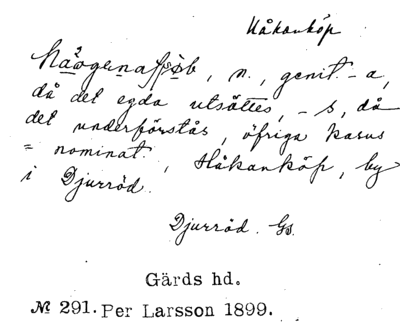 Håkanköp
n., genit. -a,
då det egda utsättes, -s, då
det underförstås, öfriga kasus
= nominat., Håkanköp, by
i Djurröd.
Djurröd. Gs.
Gärds hd.
№ 291. Per Larsson 1899.